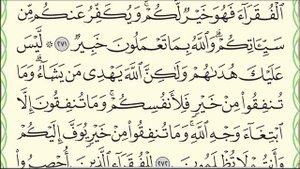 ٱلۡفُقَرَآءَ فَهُوَ خَيۡرٞ لَّكُمۡۚ وَيُكَفِّرُ عَنكُم مِّن
سَيِّـَٔاتِكُمۡۗ وَٱللَّهُ بِمَا تَعۡمَلُونَ خَبِيرٞ ٢٧١ ۞ لَّيۡسَ
عَلَيۡكَ هُدَىٰهُمۡ وَلَٰكِنَّ ٱللَّهَ يَهۡدِي مَن يَشَآءُۗ وَمَا
تُنفِقُواْ مِنۡ خَيۡرٖ فَلِأَنفُسِكُمۡۚ وَمَا تُنفِقُونَ إِلَّا
ٱبۡتِغَآءَ وَجۡهِ ٱللَّهِۚ وَمَا تُنفِقُواْ مِنۡ خَيۡرٖ يُوَفَّ إِلَيۡكُمۡ
وَأَنتُمۡ لَا تُظۡلَمُونَ ٢٧٢ لِلۡفُقَرَآءِ ٱلَّذِينَ أُحۡصِرُواْ